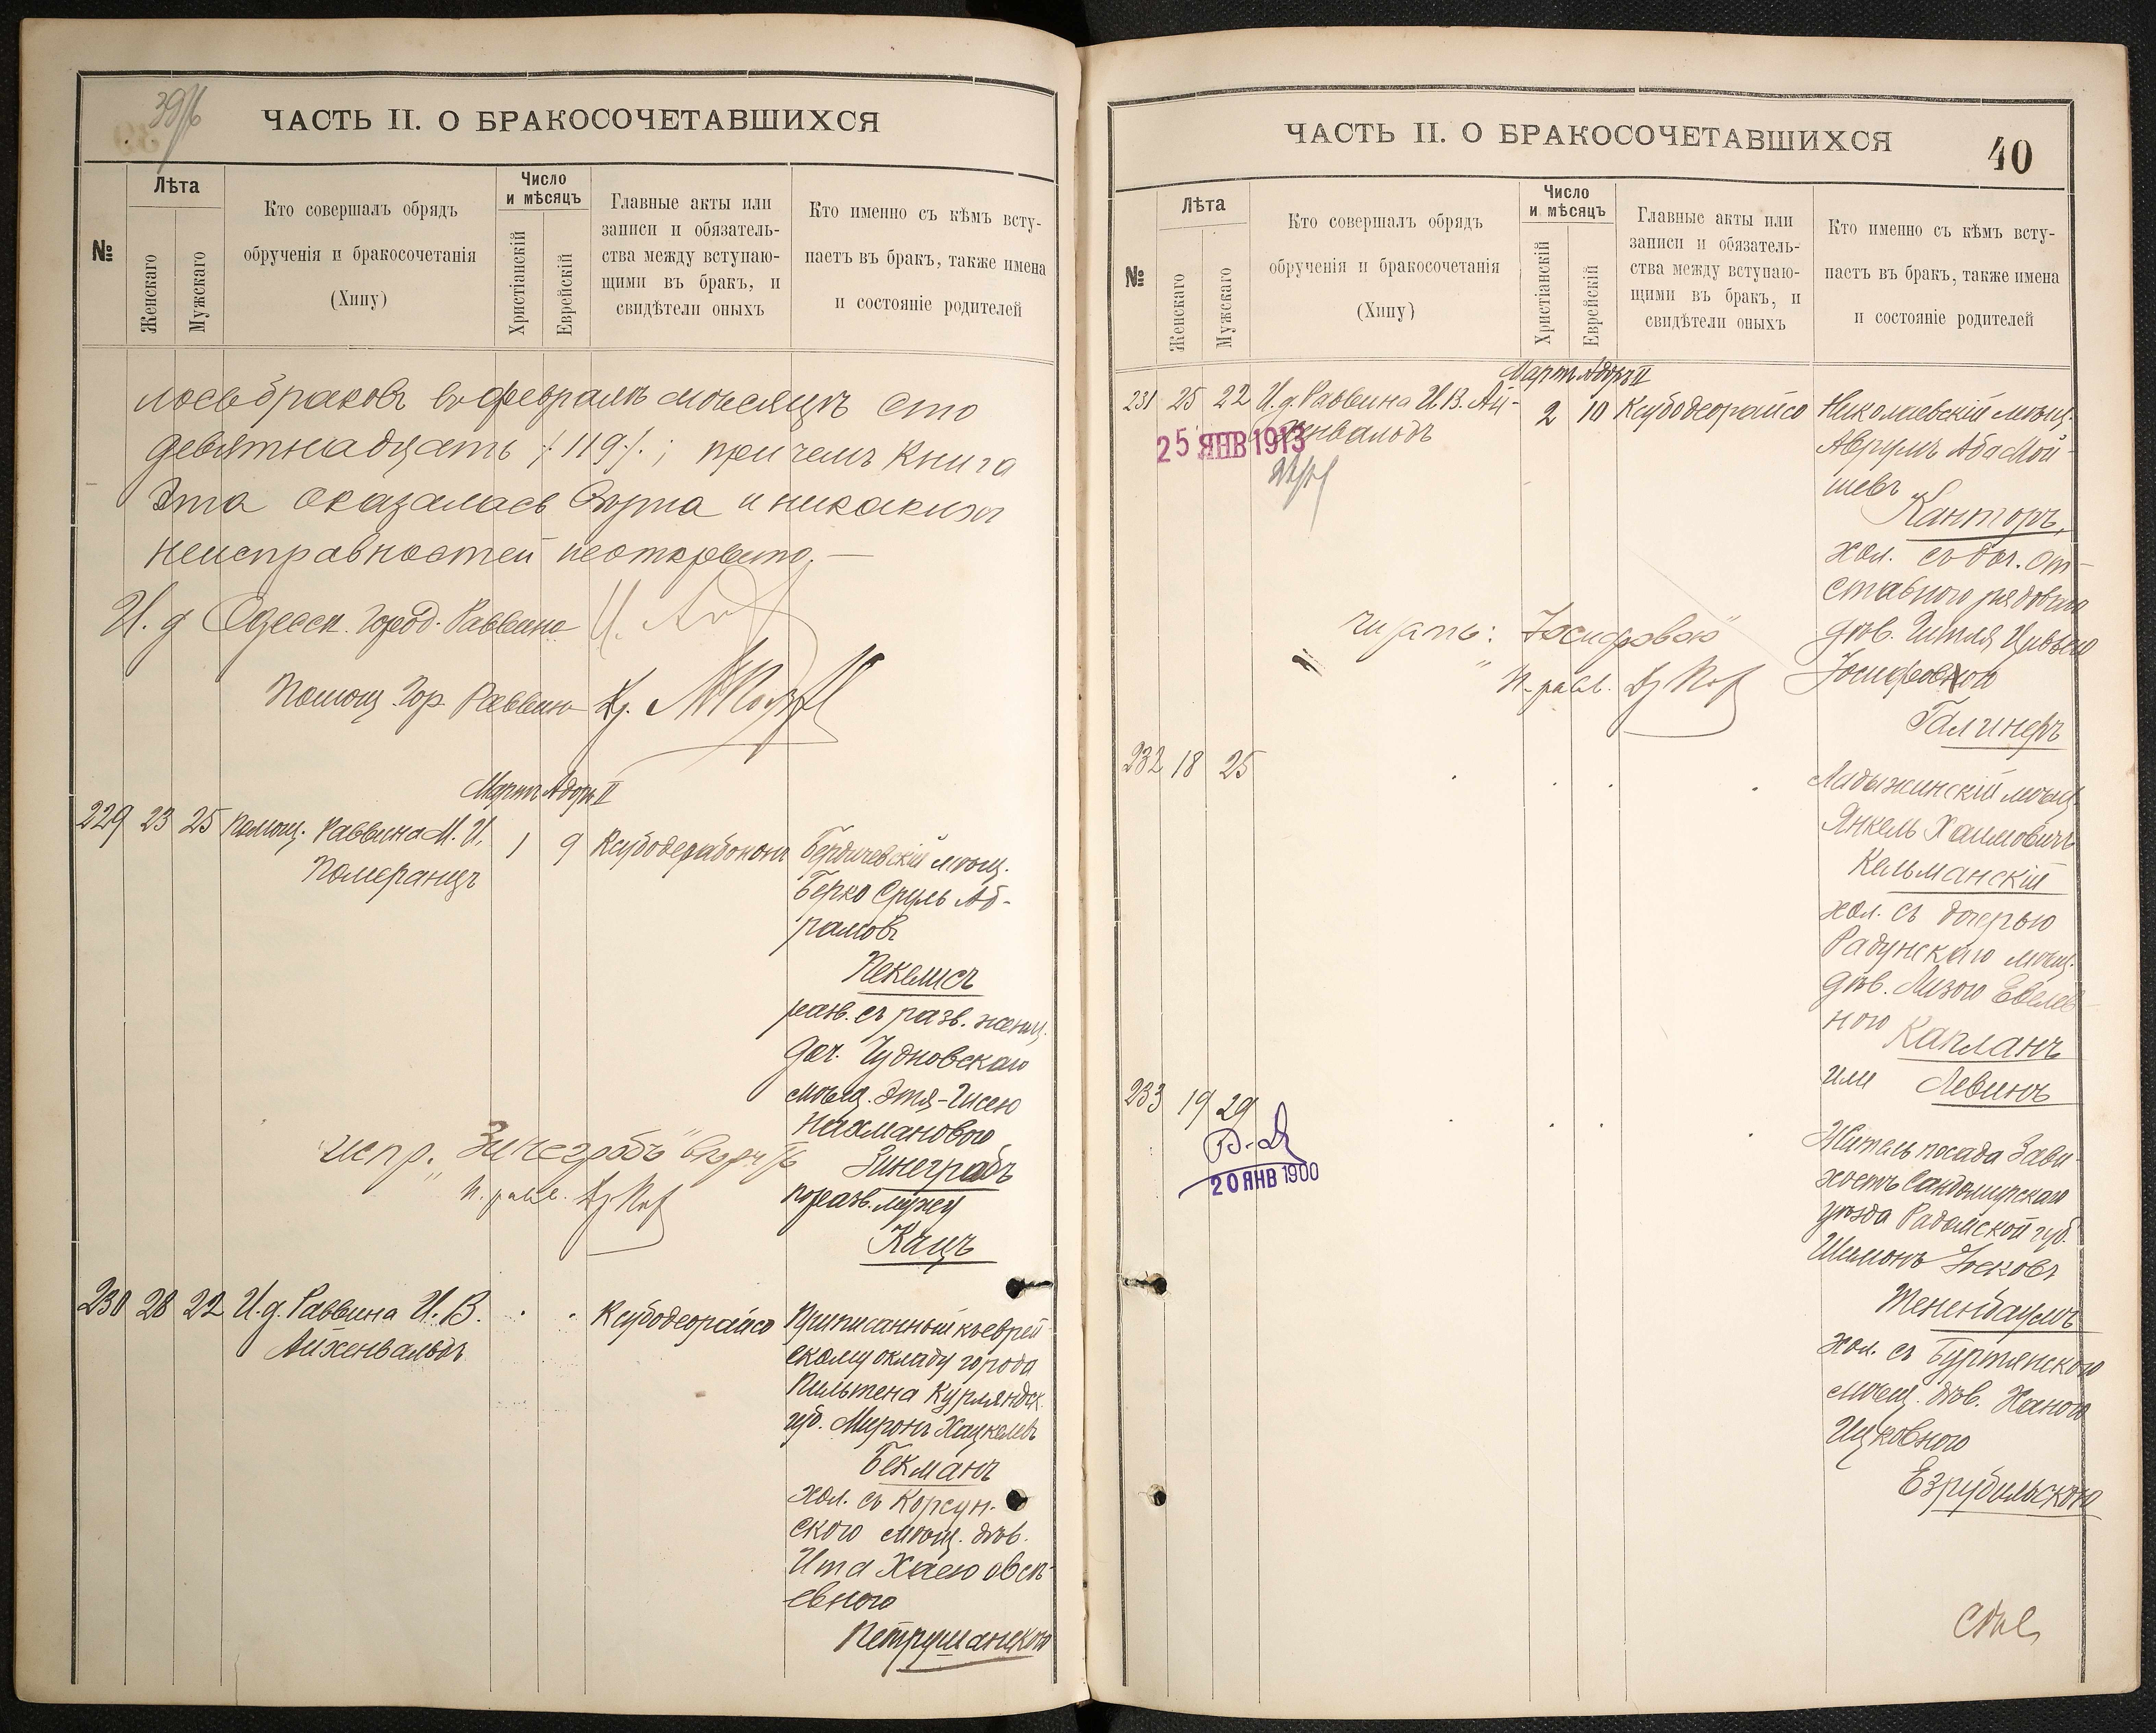 39/б
ЧАСТЬ II. О БРАКОСОЧЕТАВШИХСЯ
№
Лѣта
Женскаго
Мужскаго
Кто совершалъ обрядъ
обрученія и бракосочетанія
(Хипу)
Число
и мѣсяцъ
Христіанскій
Еврейскій
Главные акты или
записи и обязатель-
ства между вступаю-
щими въ бракъ, и
свидѣтели оныхъ
Кто именно съ кѣмъ всту-
паетъ въ бракъ, также имена
и состояніе родителей
лось браковъ въ февралѣ мѣсяцѣ сто
девятнадцать /119/.; при чемъ книга
эта оказалась вѣрна и никакихъ
неисправностей неоткрыто. —
И. д Одесск. Город. Раввина
Помощ. Гор. Раввина Др.
Мартъ Адоръ II
229 23 25 Помощ. Раввина М. И.
Померанцъ
1 9
Бердичевскій мѣщ.
Берко Сруль Аб-
рамовъ
Пекелисъ
разв. съ разв. женщ.
доч. Чудновскаго
мѣщ. Этя-Гисею
Нахмановою
Зинеграбъ
по разв. мужу
Кацъ
испр. „Зинеграбъ"
п. равв.
230 28 22 И. д. Раввина И. В.
Айхенвальдъ
Ксубодеорайсо
Приписанный къ еврей-
скому окладу города
Пильтена Курляндск.
губ. Миронъ Хацкелевъ
Бекманъ
хол. съ Корсун-
скою мѣщ. дѣв.
Ита Хаею Овсѣ-
евною
Петрушанскою
ЧАСТЬ II. О БРАКОСОЧЕТАВШИХСЯ
40
№
Лѣта
Женскаго
Мужскаго
Кто совершалъ обрядъ
обрученія и бракосочетанія
(Хипу)
Число
и мѣсяцъ
Христіанскій
Еврейскій
Главные акты или
записи и обязатель-
ства между вступаю-
щими въ бракъ, и
свидѣтели оныхъ
Кто именно съ кѣмъ всту-
паетъ въ бракъ, также имена
и состояніе родителей
Мартъ Адоръ II
231 25 22 И. д. Раввина И. В. Ай-
хенвальдъ
2 10 Ксубодеорайсо
25 ЯНВ 1913
Николаевскій мѣщ.
Аврумъ Аба Мой-
шевъ
Канторъ,
хол. съ доч. от-
ставного рядового
дѣв. Гитля Цивьею
Іосифовною
Галинеръ
читать: „Іосифовою"
п. равв.
232 18 25
Ладыжинскій мѣщ.
Янкель Хаимовичъ
Кельманскій
хол. съ дочерью
Радунскаго мѣщ.
дѣв. Лизою Евелев-
ною Капланъ
или Левинъ
233 19 29
20 ЯНВ 1900
Житель посада Зави-
хостъ Сандомирскаго
уѣзда Радомской губ.
Шимонъ Іосковъ
Тененбаумъ
хол. съ
мѣщ. дѣв. Ханою
Ицковною
Езрубильскою